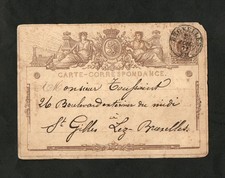 CARTE-CORRESPONDANCE.
Monsieur Toussaint
26 Boulevard exterieur du midi
St Gilles Lez-Bruxelles